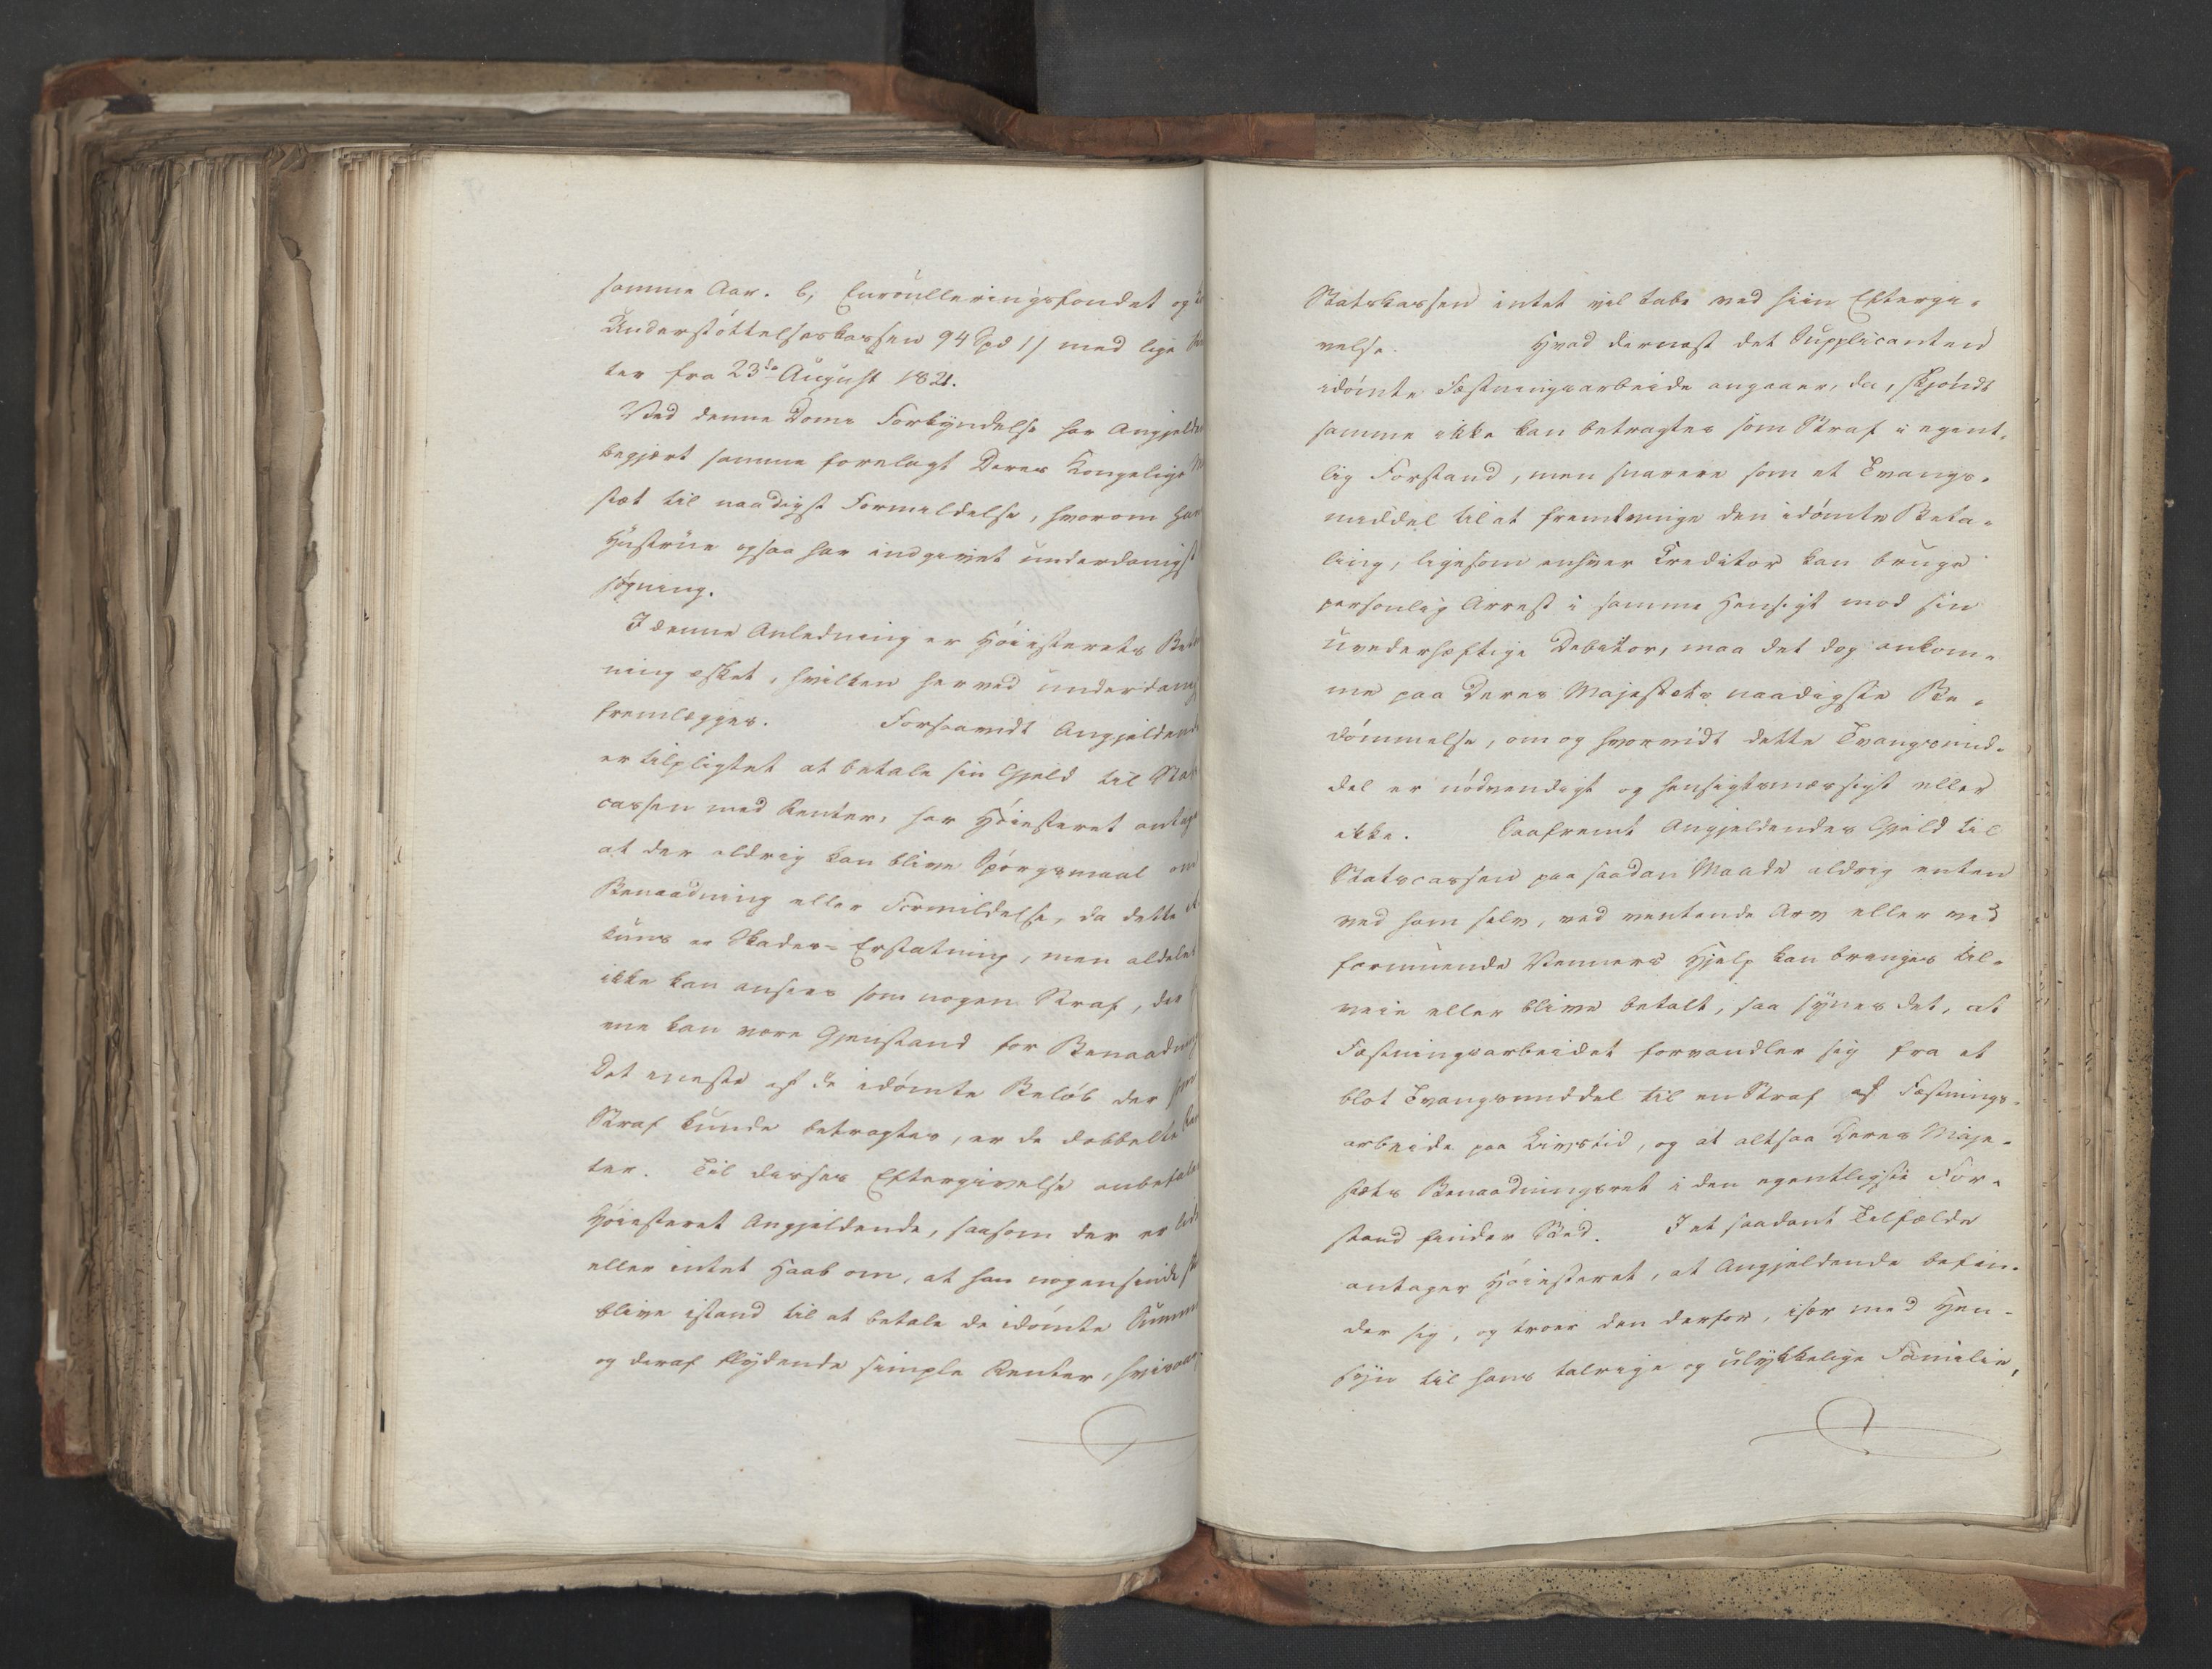 samme Aar. b, Enroulleringsfondet og
Understöttelseskassen 94 Spd // med lige
ter fra 23de August 1821.
Ved denne Doms Forkyndelse har Angjelde
begjært samme forelagt Deres Kongelige
stæt til naadigst Formildelse, hvorom Han
Hustrue ogsaa har indgivet underdanigst
søgning.
I denne Anledning er Höiesterets Be
ning æsket, hvilken herved underdanig
fremlægges. Forsaavidt Angjeldend
er tilpligtet at betale sin Gjeld til Stat
cassen med Renter, har Höiesteret antag
at der aldrig kan blive Spörgsmaal om
Benaadning eller Formildelse, da dette
kuns er Skades-Erstatning, men aldeles
ikke kan ansees som nogen Straf, der
ene kan være Gjenstand for Benaadning
Det eneste af de idömte Belöb der som
Straf kunde betragtes, er de dobbelte
ter. Til disses Eftergivelse anbefale
Höiesteret Angjeldende, saasom der er lidt
eller intet Haab om, at han nogensinde
blive istand til at betale de idömte Summ
og deraf flydende simple Renter, hvivaar
Statskassen intet vil tabe ved hiin Eftergi-
velse. Hvad dernæst det Supplicanten
idömte Fæstningsarbeide angaaer, da, skjöndt
samme ikke kan betragtes som Straf i egent-
lig Forstand, men snarere som et Tvangs-
middel til at fremtvinge den idömte Beta-
ling, ligesom enhver Creditor kan bruge
personlig Arrest i samme Hensigt mod sin
uvederhæftige Debitor, maa det dog ankom-
me paa Deres Majestæts naadigste Be-
dömmelse, om og hvorvidt dette Tvangsmid-
del er nödvendigt og hensigtsmæssigt eller
ikke. Saafremt Angjeldendes Gjeld til
Statscassen paa saadan Maade aldrig enten
ved ham selv, ved ventende Arv eller ved
formuende Venners Hjelp kan bringes til-
veie eller blive betalt, saa synes det, at
Fæstningsarbeidet forvandler sig fra et
blot Tvangsmiddel til en Straf af Fæstnings-
arbeide paa Livstid, og at altsaa Deres Maje-
stæts Benaadningsret i den egentligste For-
stand finder Sted. I et saadant Tilfælde
antager Höiesteret, at Angjeldende befin-
der sig, og troer den derfor, især med Hen-
syn til hans talrige og ulykkelige Familie,